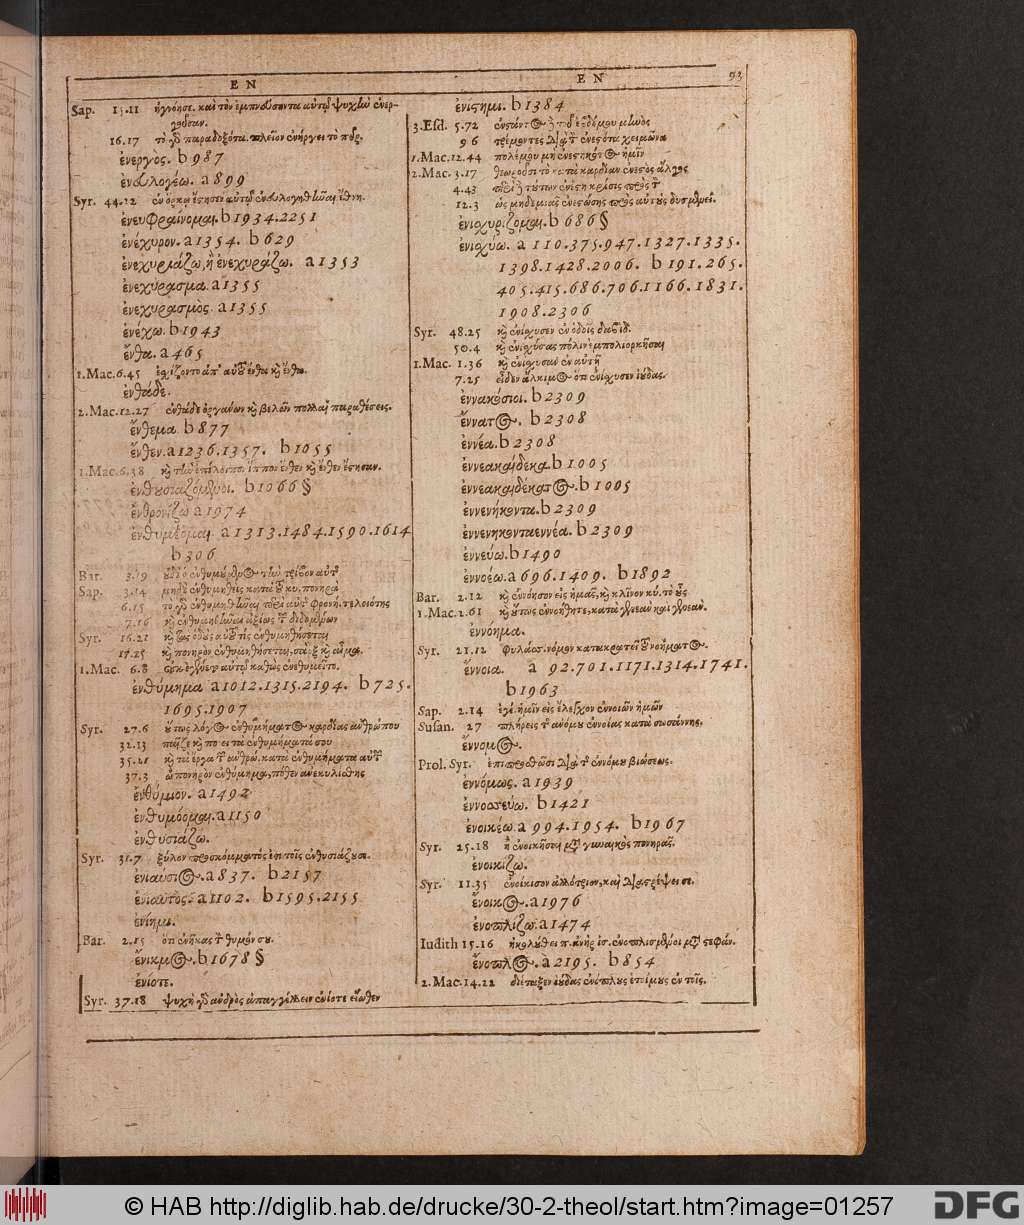 EN
EN 93
Sap. 15.11 ἠγνόησε. καὶ τὸν ἐμπνεύσαντα αὐτῷ ψυχὴν ἐνερ-
γοῦσαν.
16.17 τὸ γὰρ παραδοξότα. πλεῖον ἐνήργει τὸ πῦρ,
ἐνεργος. b 987
ἐνευλογέω. a 899
Syr. 44.12 ἐν ὅρκῳ ἔστησεν αὐτῷ ἐνευλογηθῆναι ἔθνη.
ἐνευφραίνομαι. b 1934.2251
ἐνέχυρον. a 1354. b 629
ἐνεχυριάζω, ἢ ἐνεχυράζω. a 1353
ἐνεχυρασμα. a 1355
ἐνεχυρασμὸς. a 1355
ἐνέχω. b 1943
ἔνθα. a 465
1.Mac. 6.45 ἐσχίζοντο ἀπ' αὐτοῦ ἔνθα καὶ ἔνθα.
ἐνθάδε.
2.Mac. 12.27 ἐνθάδε ὀργάνων καὶ βελῶν πολλαὶ παραθέσεις.
ἔνθεμα b 877
ἔνθεν. a 1236.1357. b 1055
1.Mac. 6.38 καὶ τὴν ἐπίλοιπον ἵππον ἔνθεν καὶ ἔνθεν ἔστησαν.
b 1066 §
ἐνθρονίζω a 1974
ἐνθυμέομαι. a 1313.1484.1590.1614
b 306
Bar. 3.19
Sap. 3.14 κυ. πονηρὰ
6.15 τὸ γὰρ ἐνθυμηθῆναι περὶ αὐτῆς φρονή. τελειότης
7.16 καὶ ἐνθυμηθῆναι ἀξίως τῶν δεδομένων
Syr. 16.21 καὶ τὰς ὁδοὺς αὐτοῦ τίς ἐνθυμηθήσεται
17.25 καὶ πονηρὸν ἐνθυμηθήσεται, σὰρξ καὶ αἷμα.
1.Mac. 6.8 αὐτῷ καθὼς ἐνεθυμεῖτο.
ἐνθύμημα a 1012.1315.2194. b 725.
1695.1907
Syr. 27.6 οὕτως λόγος ἐνθυμήματος καρδίας ἀνθρώπου
32.13 παῖζε καὶ ποίει τὰ ἐνθυμήματά σου
35.21 καὶ τὰ ἔργα τῶν ἀνθρώ. κατὰ ἐνθυμήματα αὐτῶν
37.3 ὦ πονηρὸν ἐνθύμημα, πόθεν ἀνεκυλίσθης
ἐνθύμιον. a 1492
ἐνθυμόομαι. a 1150
ἐνθυσιάζω.
Syr. 31.7 ξύλον προσκόμματός ἐστι τοῖς ἐνθυσιάζουσι.
ἐνιαυσιος. a 837. b 2157
ἐνιαυτὸς. a 1102. b 1595.2155
ἐνίημι.
Bar. 2.15 ὅτι ἐνῆκας τὸν θυμόν σου.
ἔνικμος. b 1678 §
ἐνίοτε.
Syr. 37.18 ψυχὴ γὰρ ἀνδρὸς ἀπαγγέλλειν ἐνίοτε εἴωθεν
ἐνιστημι. b 1384
3.Esd. 5.72 ἐνστάντος τοῦ ἑβδόμου μηνὸς
9 6 τρέμοντες διὰ τὸν ἐνεστῶτα χειμῶνα
1.Mac. 12.44 πολέμου μὴ ἐνεστηκότος ἡμῖν
2.Mac. 3.17 θεωροῦσι τὸ κατὰ καρδίαν ἐνεστὸς ἄλγος
4.43 περὶ τούτων ἐνέστη κρίσις πρὸς τὸν
12.3 ὡς μηδεμιᾶς ἐνεστώσης πρὸς αὐτοὺς δυσμενεί.
ἐνισχυρίζομαι. b 686 §
ἐνισχύω. a 110.375.947.1327.1335.
1398.1428.2006. b 191.265.
405.415.686.706.1166.1831.
1908.2306
Syr. 48.25 καὶ ἐνίσχυσεν ἐν ὁδοῖς δαυίδ.
50.4 καὶ ἐνισχύσας πόλιν ἐμπολιορκῆσαι
1.Mac. 1.36 καὶ ἐνίσχυσαν ἐν αὐτῇ
7.25 εἶδεν ἄλκιμος ὅτι ἐνίσχυσεν ἰούδας.
ἐννακόσιοι. b 2309
ἔννατος. b 2308
ἐννέα. b 2308
ἐννεακαίδεκα. b 1005
ἐννεακαιδέκατος. b 1005
ἐννενήκοντα. b 2309
ἐννενηκονταεννέα. b 2309
ἐννεύω. b 1490
ἐννοέω. a 696.1409. b 1892
Bar. 2.12 καὶ ἐννόησον εἰς ἡμᾶς, καὶ κλῖνον κύ. τὸ οὖς
1.Mac. 2.61 καὶ οὕτως ἐννοήθητε, κατὰ γενεὰν καὶ γενεὰν.
ἐννόημα.
Syr. 21.12 φυλάσ. νόμον κατακρατεῖ τοῦ ἐννοήματος.
ἔννοια. a 92.701.1171.1314.1741.
b 1963
Sap. 2.14 ἐγέ. ἡμῖν εἰς ἔλεγχον ἐννοιῶν ἡμῶν
Susan. 27 πλήρεις τῆς ἀνόμου ἐννοίας κατὰ σωσάννης.
ἔννομος.
Prol. Syr. ἐπιπροσθῶσι διὰ τῆς ἐννόμου βιώσεως.
ἐννόμως. a 1939
ἐννοσσεύω. b 1421
ἐνοικέω. a 994.1954. b 1967
Syr. 25.18 ἢ ἐνοικῆσαι μετὰ γυναικὸς πονηρᾶς.
ἐνοικιζω.
Syr. 11.35 ἐνοίκισον ἀλλότριον, καὶ διαστρέψει σε.
ἔνοικος. a 1976
ἐνοπλίζω. a 1474
Iudith 15.16 ἠκολούθει π. ἀνὴρ ἰσ. ἐνωπλισμένοι μετὰ στεφάν.
ἔνοπλος. a 2195. b 854
2.Mac. 14.22 διέταξεν ἰούδας ἐνόπλους ἑτοίμους ἐν τοῖς.
© HAB http://diglib.hab.de/drucke/30-2-theol/start.htm?image=01257
DFG